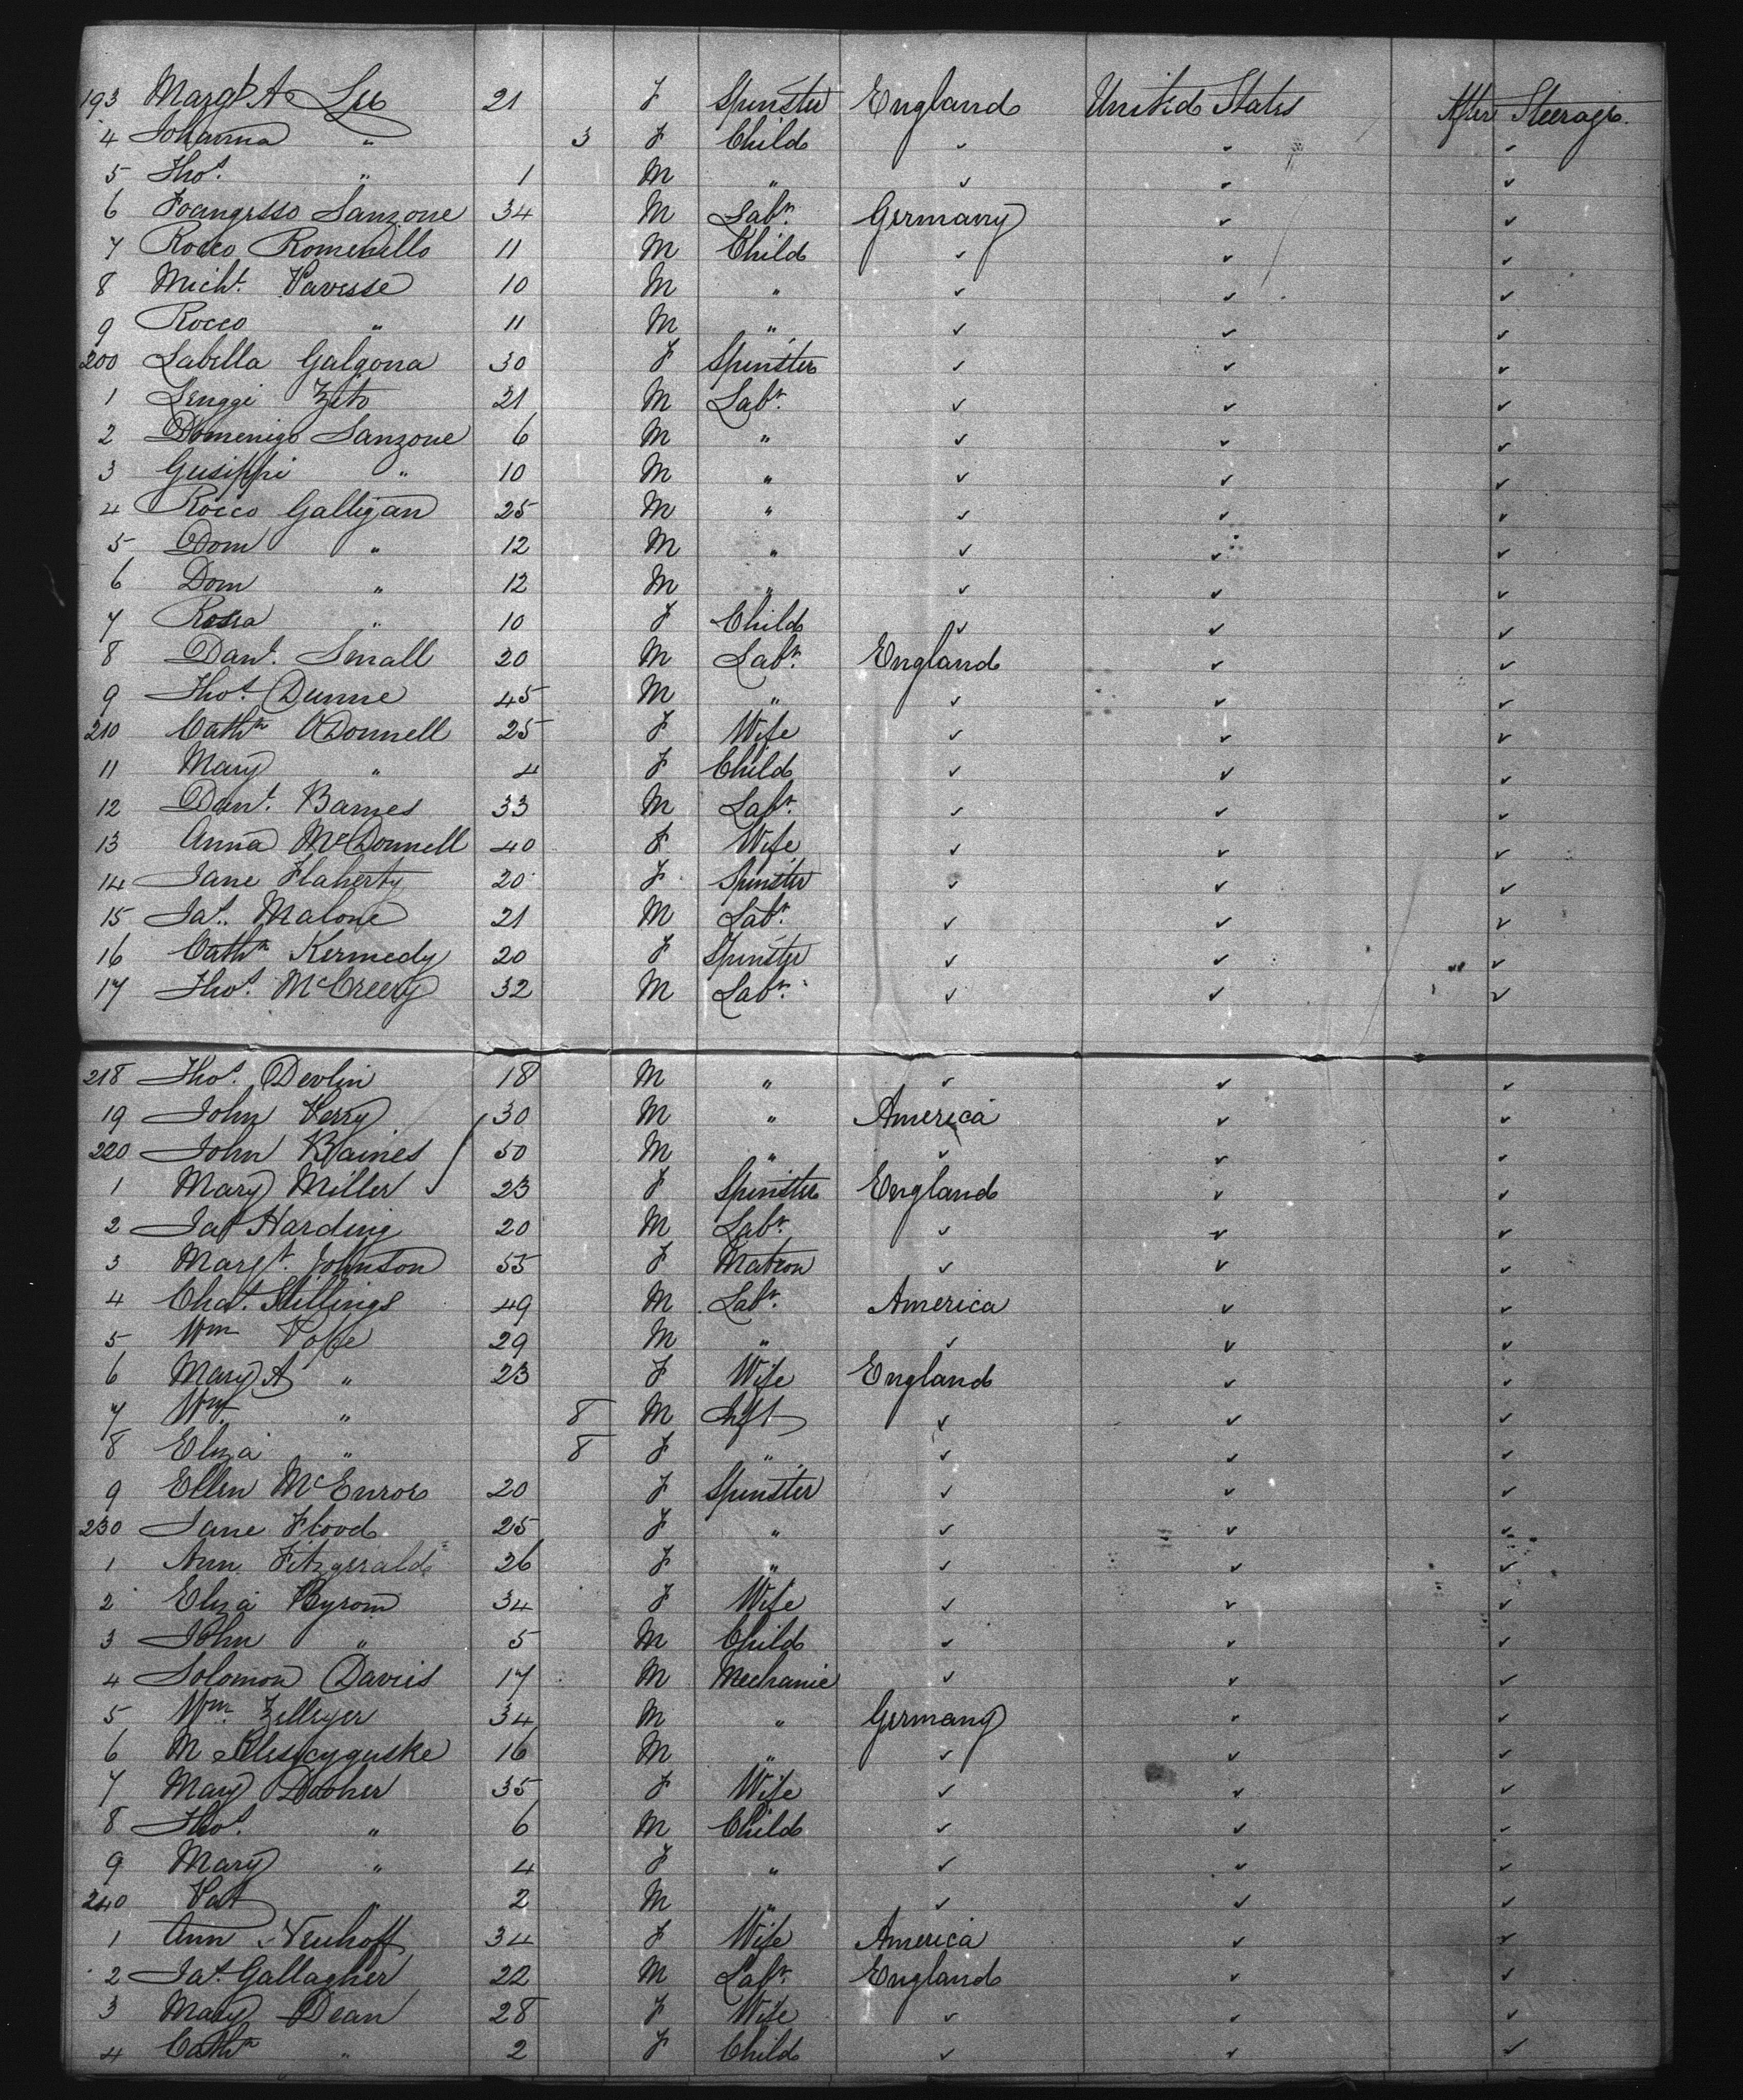 193 Margt A Lee 21 F Spinster England United States After Steerage.
4 Johanna " 3 F Child ✓ ✓ ✓
5 Thos. " 1 M " ✓ ✓ ✓
6 Sanzone 34 M Labr. Germany ✓ ✓
7 Rocco Romeniello 11 M Child ✓ ✓ ✓
8 Michl. Pavesse 10 M " ✓ ✓ ✓
9 Rocco " 11 M " ✓ ✓ ✓
200 Labella Galgona 30 F Spinster ✓ ✓ ✓
1 Lenggi Zito 21 M Labr. ✓ ✓ ✓
2 Domenigo Sanzone 6 M " ✓ ✓ ✓
3 Gusippi " 10 M " ✓ ✓ ✓
4 Rocco Galligan 25 M " ✓ ✓ ✓
5 Dom " 12 M " ✓ ✓ ✓
6 Dom " 12 M " ✓ ✓ ✓
7 Rosa " 10 F Child ✓ ✓ ✓
8 Danl. Small 20 M Labr. England ✓ ✓
9 Thos. Dunne 45 M " ✓ ✓ ✓
210 Cathn ODonnell 25 F Wife ✓ ✓ ✓
11 Mary " 4 F Child ✓ ✓ ✓
12 Danl. Barnes 33 M Labr. ✓ ✓ ✓
13 Anna McDonnell 40 F Wife ✓ ✓ ✓
14 Jane Flaherty 20 F Spinster ✓ ✓ ✓
15 Jas. Malone 21 M Labr. ✓ ✓ ✓
16 Cathn Kennedy 20 F Spinster ✓ ✓ ✓
17 Thos. McCreery 32 M Labr. ✓ ✓ ✓
218 Thos. Devlin 18 M " ✓ ✓ ✓
19 John Perry 30 M " America ✓ ✓
220 John Baines 50 M " ✓ ✓ ✓
1 Mary Miller 23 F Spinster England ✓ ✓
2 Jas Harding 20 M Labr. ✓ ✓ ✓
3 Margt. Johnson 55 F Matron ✓ ✓ ✓
4 Chas. Stillings 49 M Labr. America ✓ ✓
5 Wm Pope 29 M " ✓ ✓ ✓
6 Mary A " 23 F Wife England ✓ ✓
7 Wm " 8 M Inft ✓ ✓ ✓
8 Eliza " 8 F " ✓ ✓ ✓
9 Ellen McEnroe 20 F Spinster ✓ ✓ ✓
230 Jane Flood 25 F " ✓ ✓ ✓
1 Ann Fitzgerald 26 F " ✓ ✓ ✓
2 Eliza Byrom 34 F Wife ✓ ✓ ✓
3 John " 5 M Child ✓ ✓ ✓
4 Solomon Davis 17 M Mechanic ✓ ✓ ✓
5 Wm. Zelleyer 34 M " Germany ✓ ✓
6 M 16 M " ✓ ✓ ✓
7 Mary Dooher 35 F Wife ✓ ✓ ✓
8 Thos. " 6 M Child ✓ ✓ ✓
9 Mary " 4 F " ✓ ✓ ✓
240 Pat " 2 M " ✓ ✓ ✓
1 Ann Neuhoff 34 F Wife America ✓ ✓
2 Jas. Gallagher 22 M Labr. England ✓ ✓
3 Mary Dean 28 F Wife ✓ ✓ ✓
4 Cathn " 2 F Child ✓ ✓ ✓